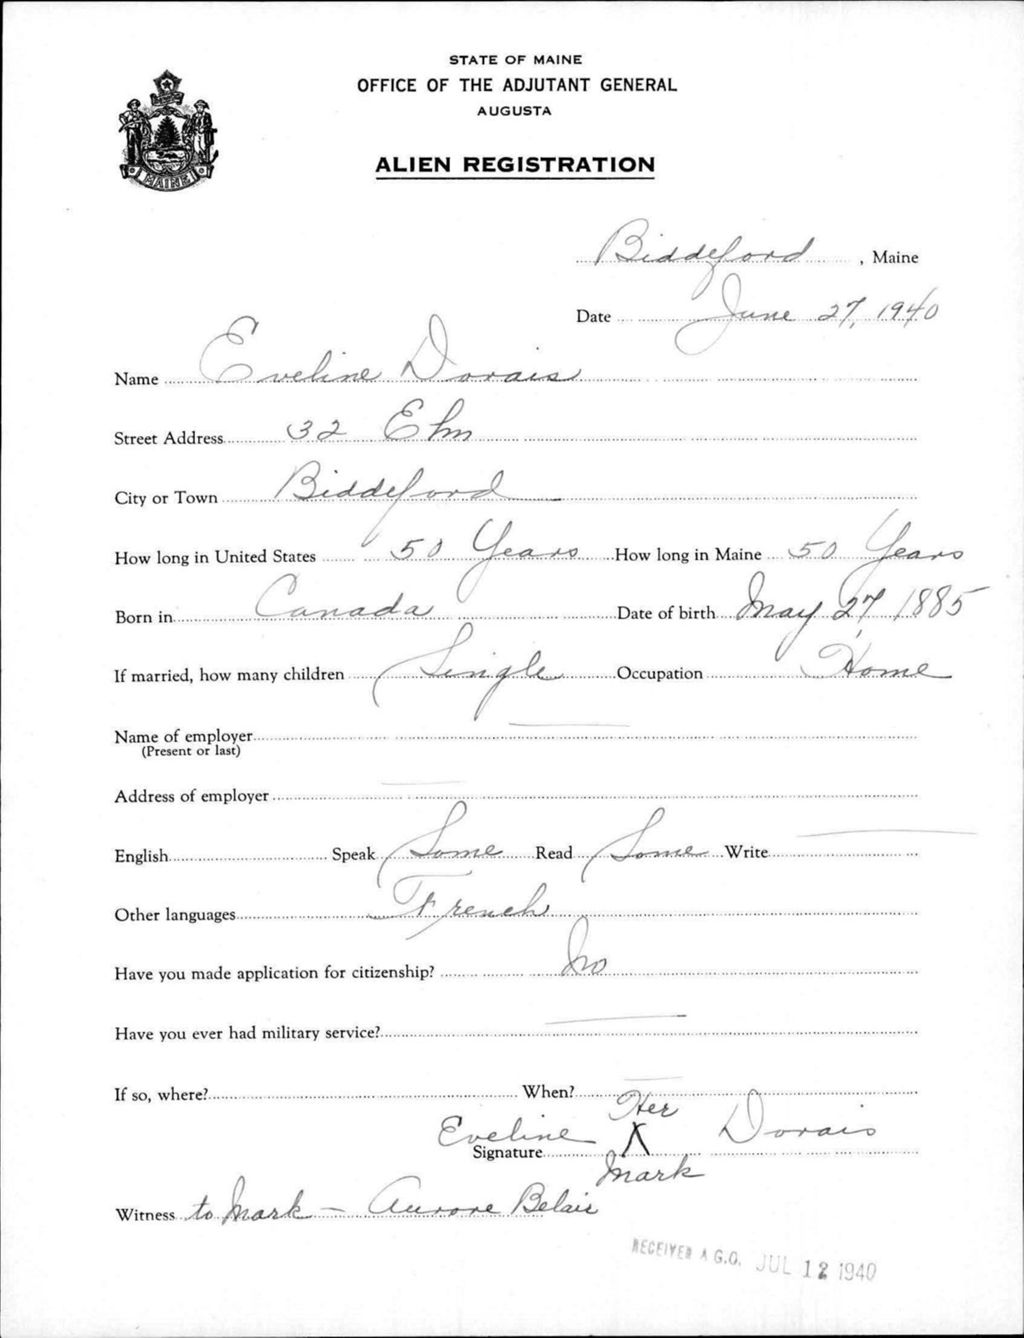 STATE OF MAINE
OFFICE OF THE ADJUTANT GENERAL
AUGUSTA
ALIEN REGISTRATION
MAINE
Biddeford, Maine
Date June 27, 1940
Name Eveline Dorais
Street Address 32 Elm
City or Town Biddeford
How long in United States 50 Years How long in Maine 50 Years
Born in Canada Date of birth May 27, 1885
If married, how many children Single Occupation Home
Name of employer
(Present or last)
Address of employer
English Speak Some Read Some Write
Other languages French
Have you made application for citizenship? No
Have you ever had military service?
If so, where? When?
Her
Eveline X Dorais
Signature
Mark
Witness to Mark - Aurore Belair
RECEIVED A.G.O. JUL 12 1940